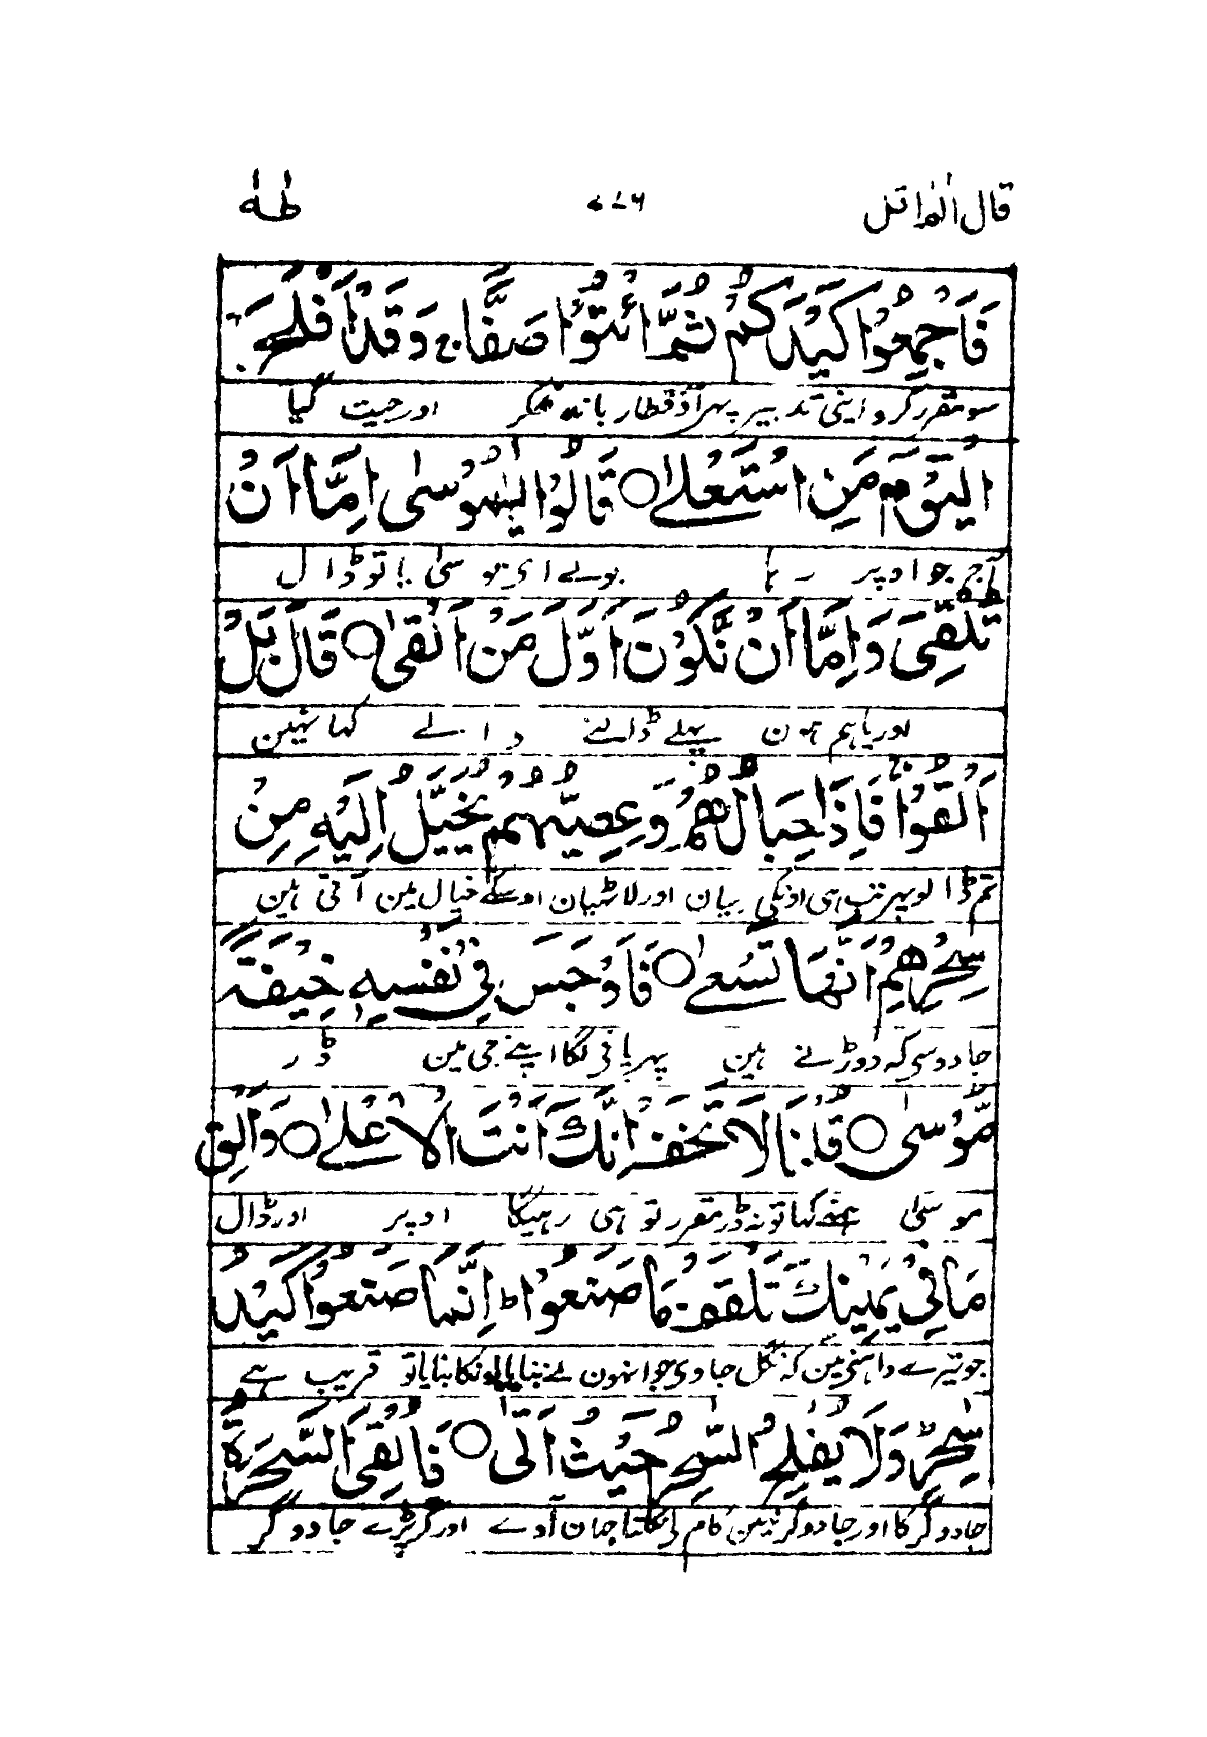 قال الم اقل ٧٧٦ طٰهٰ
فَاَجْمِعُوْا كَيْدَكُمْ ثُمَّ ائْتُوْا صَفًّا ج وَقَدْ اَفْلَحَ
سو مقرر کرو اپنی تدبیر پہر آؤ قطار باندھکر اور جیت گیا
الْيَوْمَ مَنِ اسْتَعْلٰى ○ قَالُوْا يٰمُوْسٰى اِمَّا اَنْ
آج جو اوپر رہا بولے ای موسیٰ یا تو ڈال
تُلْقِيَ وَاِمَّا اَنْ نَّكُوْنَ اَوَّلَ مَنْ اَلْقٰى ○ قَالَ بَلْ
اور یا ہم ہون پہلے ڈالنے والے کہا نہین
اَلْقُوْا ج فَاِذَا حِبَالُهُمْ وَعِصِيُّهُمْ يُخَيَّلُ اِلَيْهِ مِنْ
تم ڈالو پہر تب ہی اونکی رسیان اور لاٹھیان اوسکے خیال مین آتی ہین
سِحْرِهِمْ اَنَّهَا تَسْعٰى ○ فَاَوْجَسَ فِيْ نَفْسِهٖ خِيْفَةً
جادو سی کہ دوڑتے ہین پہر پانے لگا اپنے جی مین ڈر
مُّوْسٰى ○ قُلْنَا لَا تَخَفْ اِنَّكَ اَنْتَ الْاَعْلٰى ○ وَاَلْقِ
موسیٰ ہمنے کہا تو نہ ڈر مقرر تو ہی رہیگا اوپر اور ڈال
مَا فِيْ يَمِيْنِكَ تَلْقَفْ مَا صَنَعُوْا ط اِنَّمَا صَنَعُوْا كَيْدُ
جو تیرے داہنی مین کہ نگل جاوی جو انہون نے بنایا اونکا بنایا تو فریب ہے
سٰحِرٍ ط وَلَا يُفْلِحُ السّٰحِرُ حَيْثُ اَتٰى ○ فَاُلْقِيَ السَّحَرَةُ
جادوگر کا اور جادوگر نہین کام لے نکلتا جہان آوے اور گر پڑے جادوگر